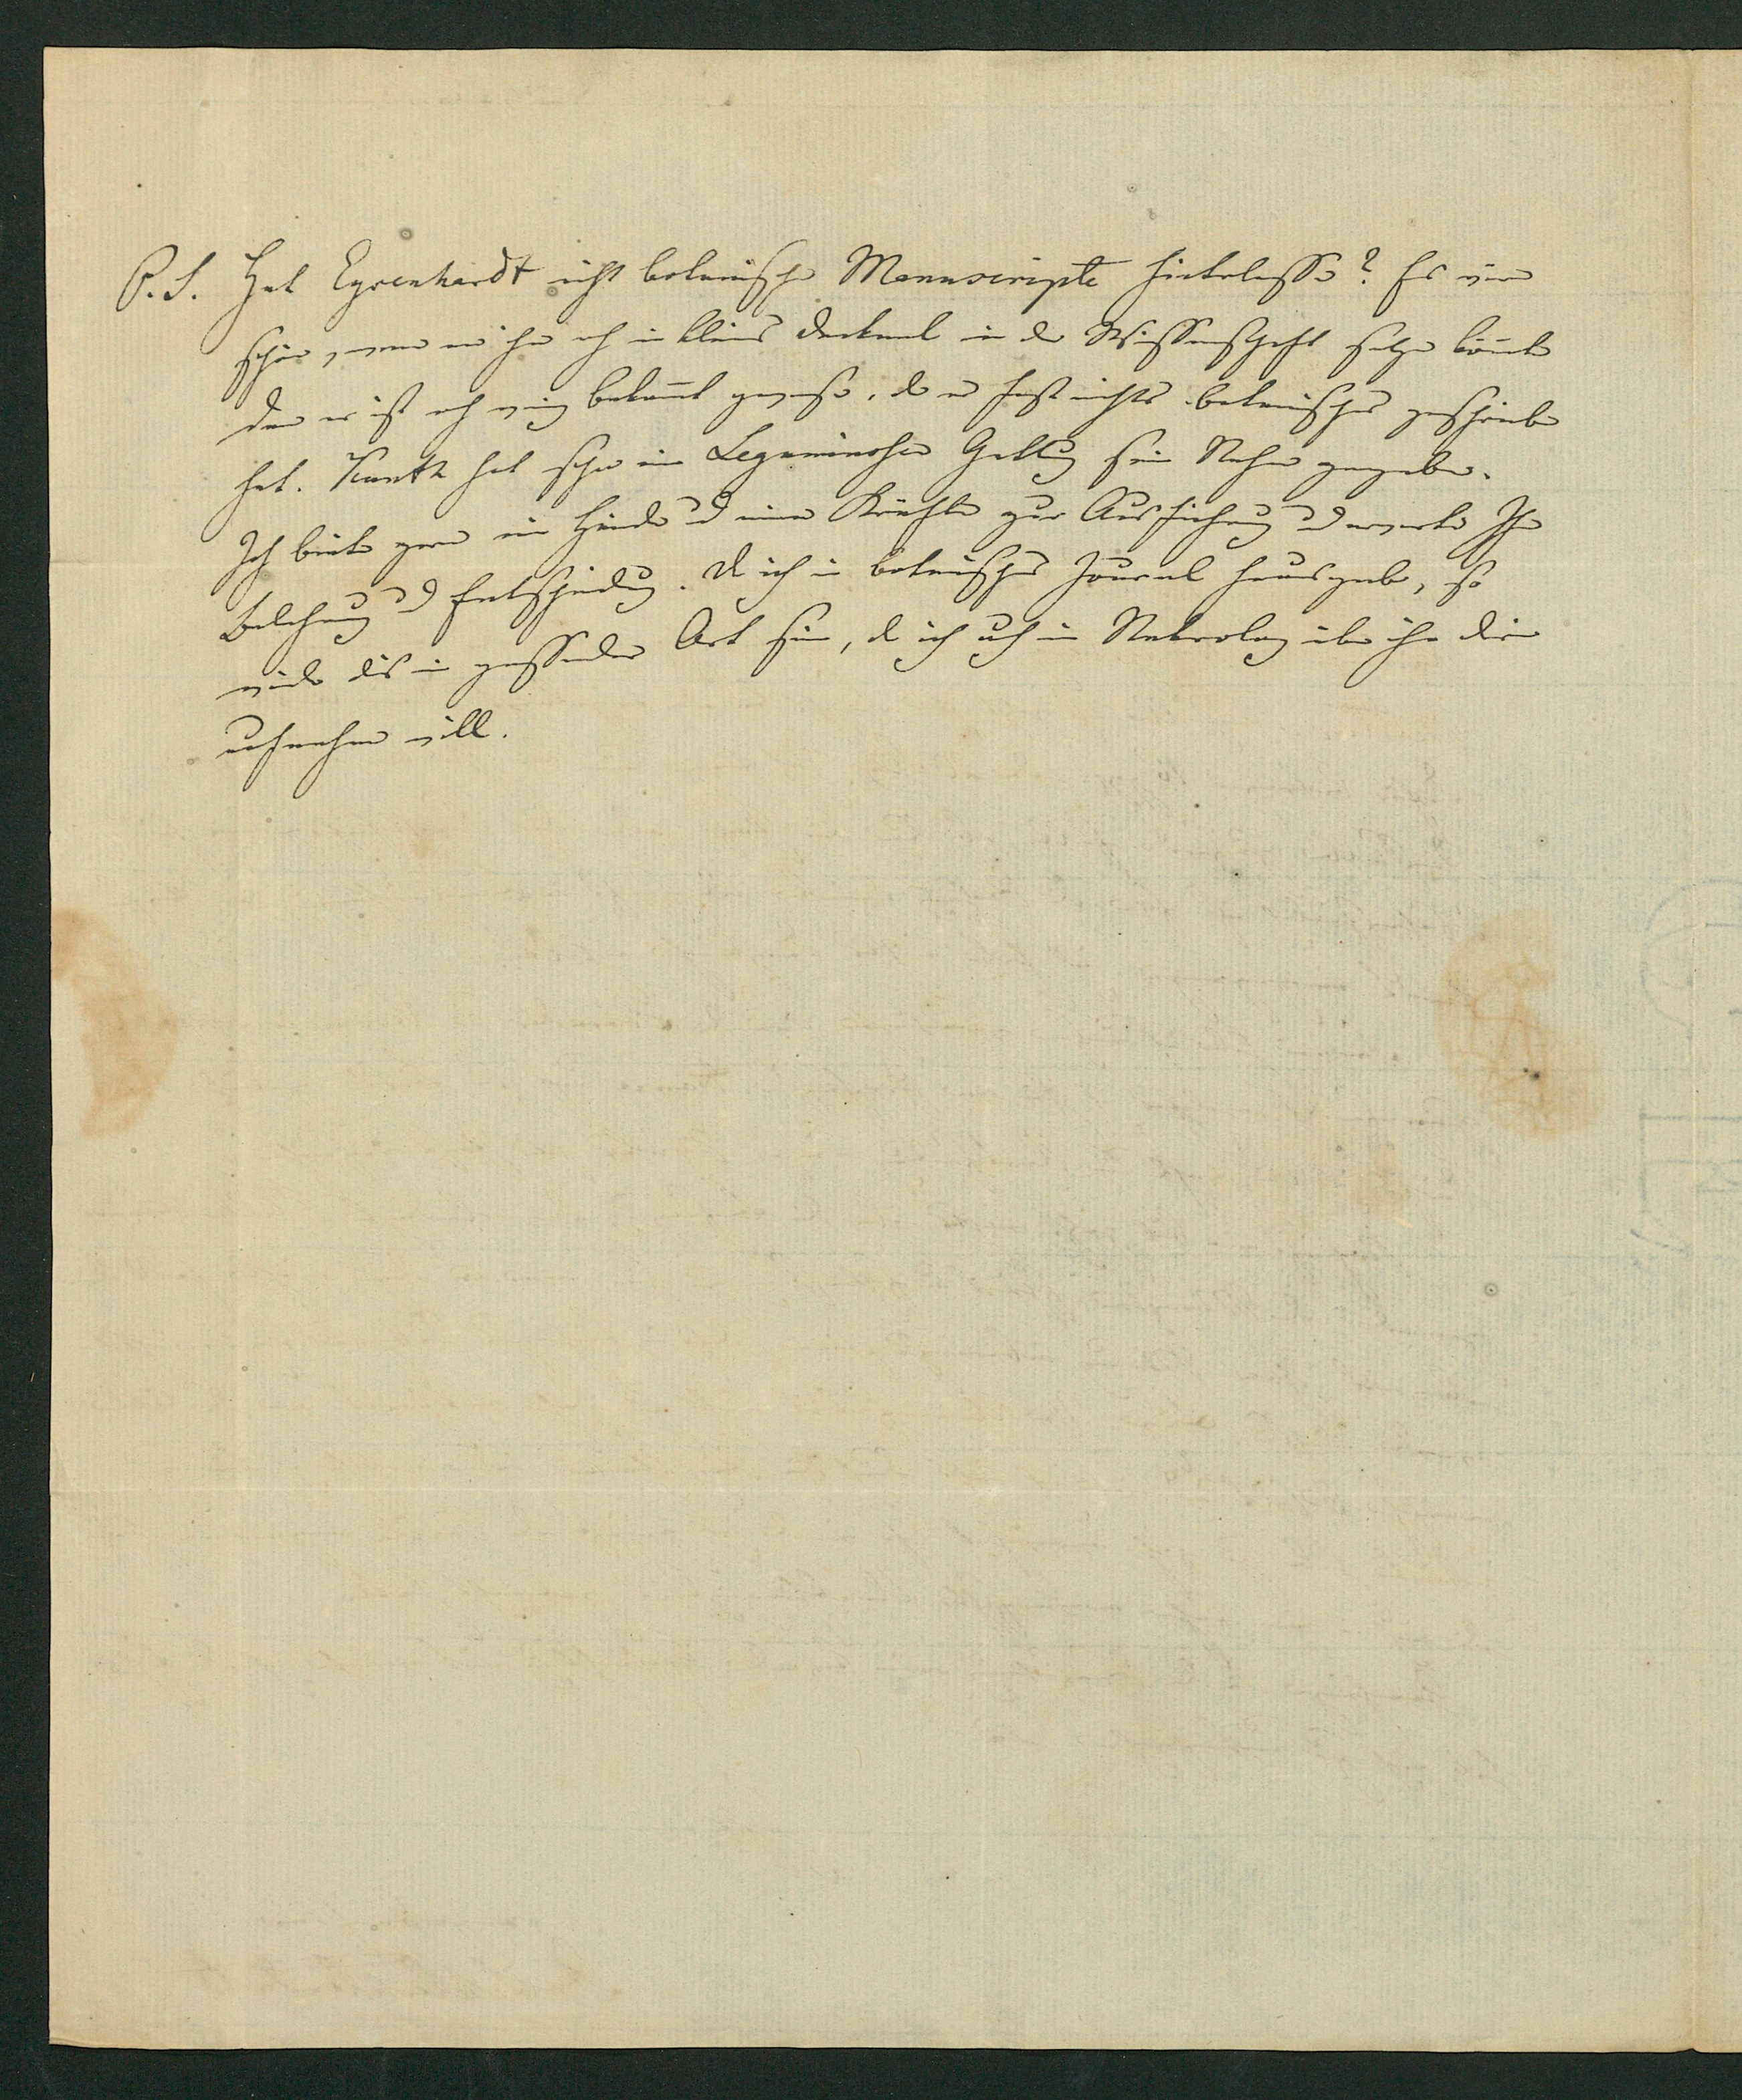 P.S. Hat Eysenhardt nicht botanische Manuscripte hinterlassen? Es wäre
schön, wenn wir ihm noch ein kleines Denkmal in der Wissenschaft setzen könnten
denn er ist noch wenig bekannt gewesen, da er fast nichts botanisches geschrieben
hat. Kunth hat schon eine Leguminosen Gattung seinen Nahmen gegeben.
Ich biete gern meine Hände und meine Kräfte zur Ausführung und erwarte Ihre
Belehrung und Entscheidung. Da ich ein botanisches Journal herausgebe, so
würde dies ein passender Ort sein, da ich auch einen Nekrolog über ihn darin
aufnehmen will.